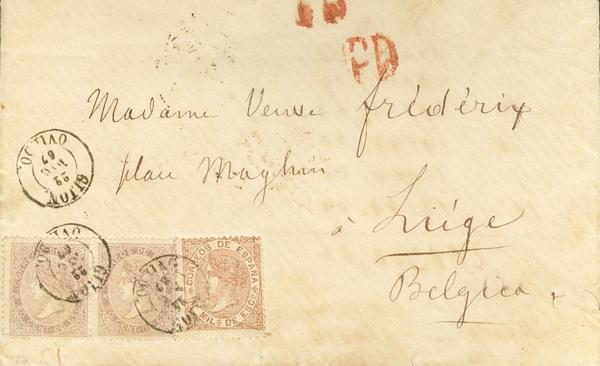 PD
Madame Veuve Frédérix
place Maghin
à Liège
Belgica
GIJON
OVIEDO
CORREOS DE ESPAÑA
MILS DE ESCO